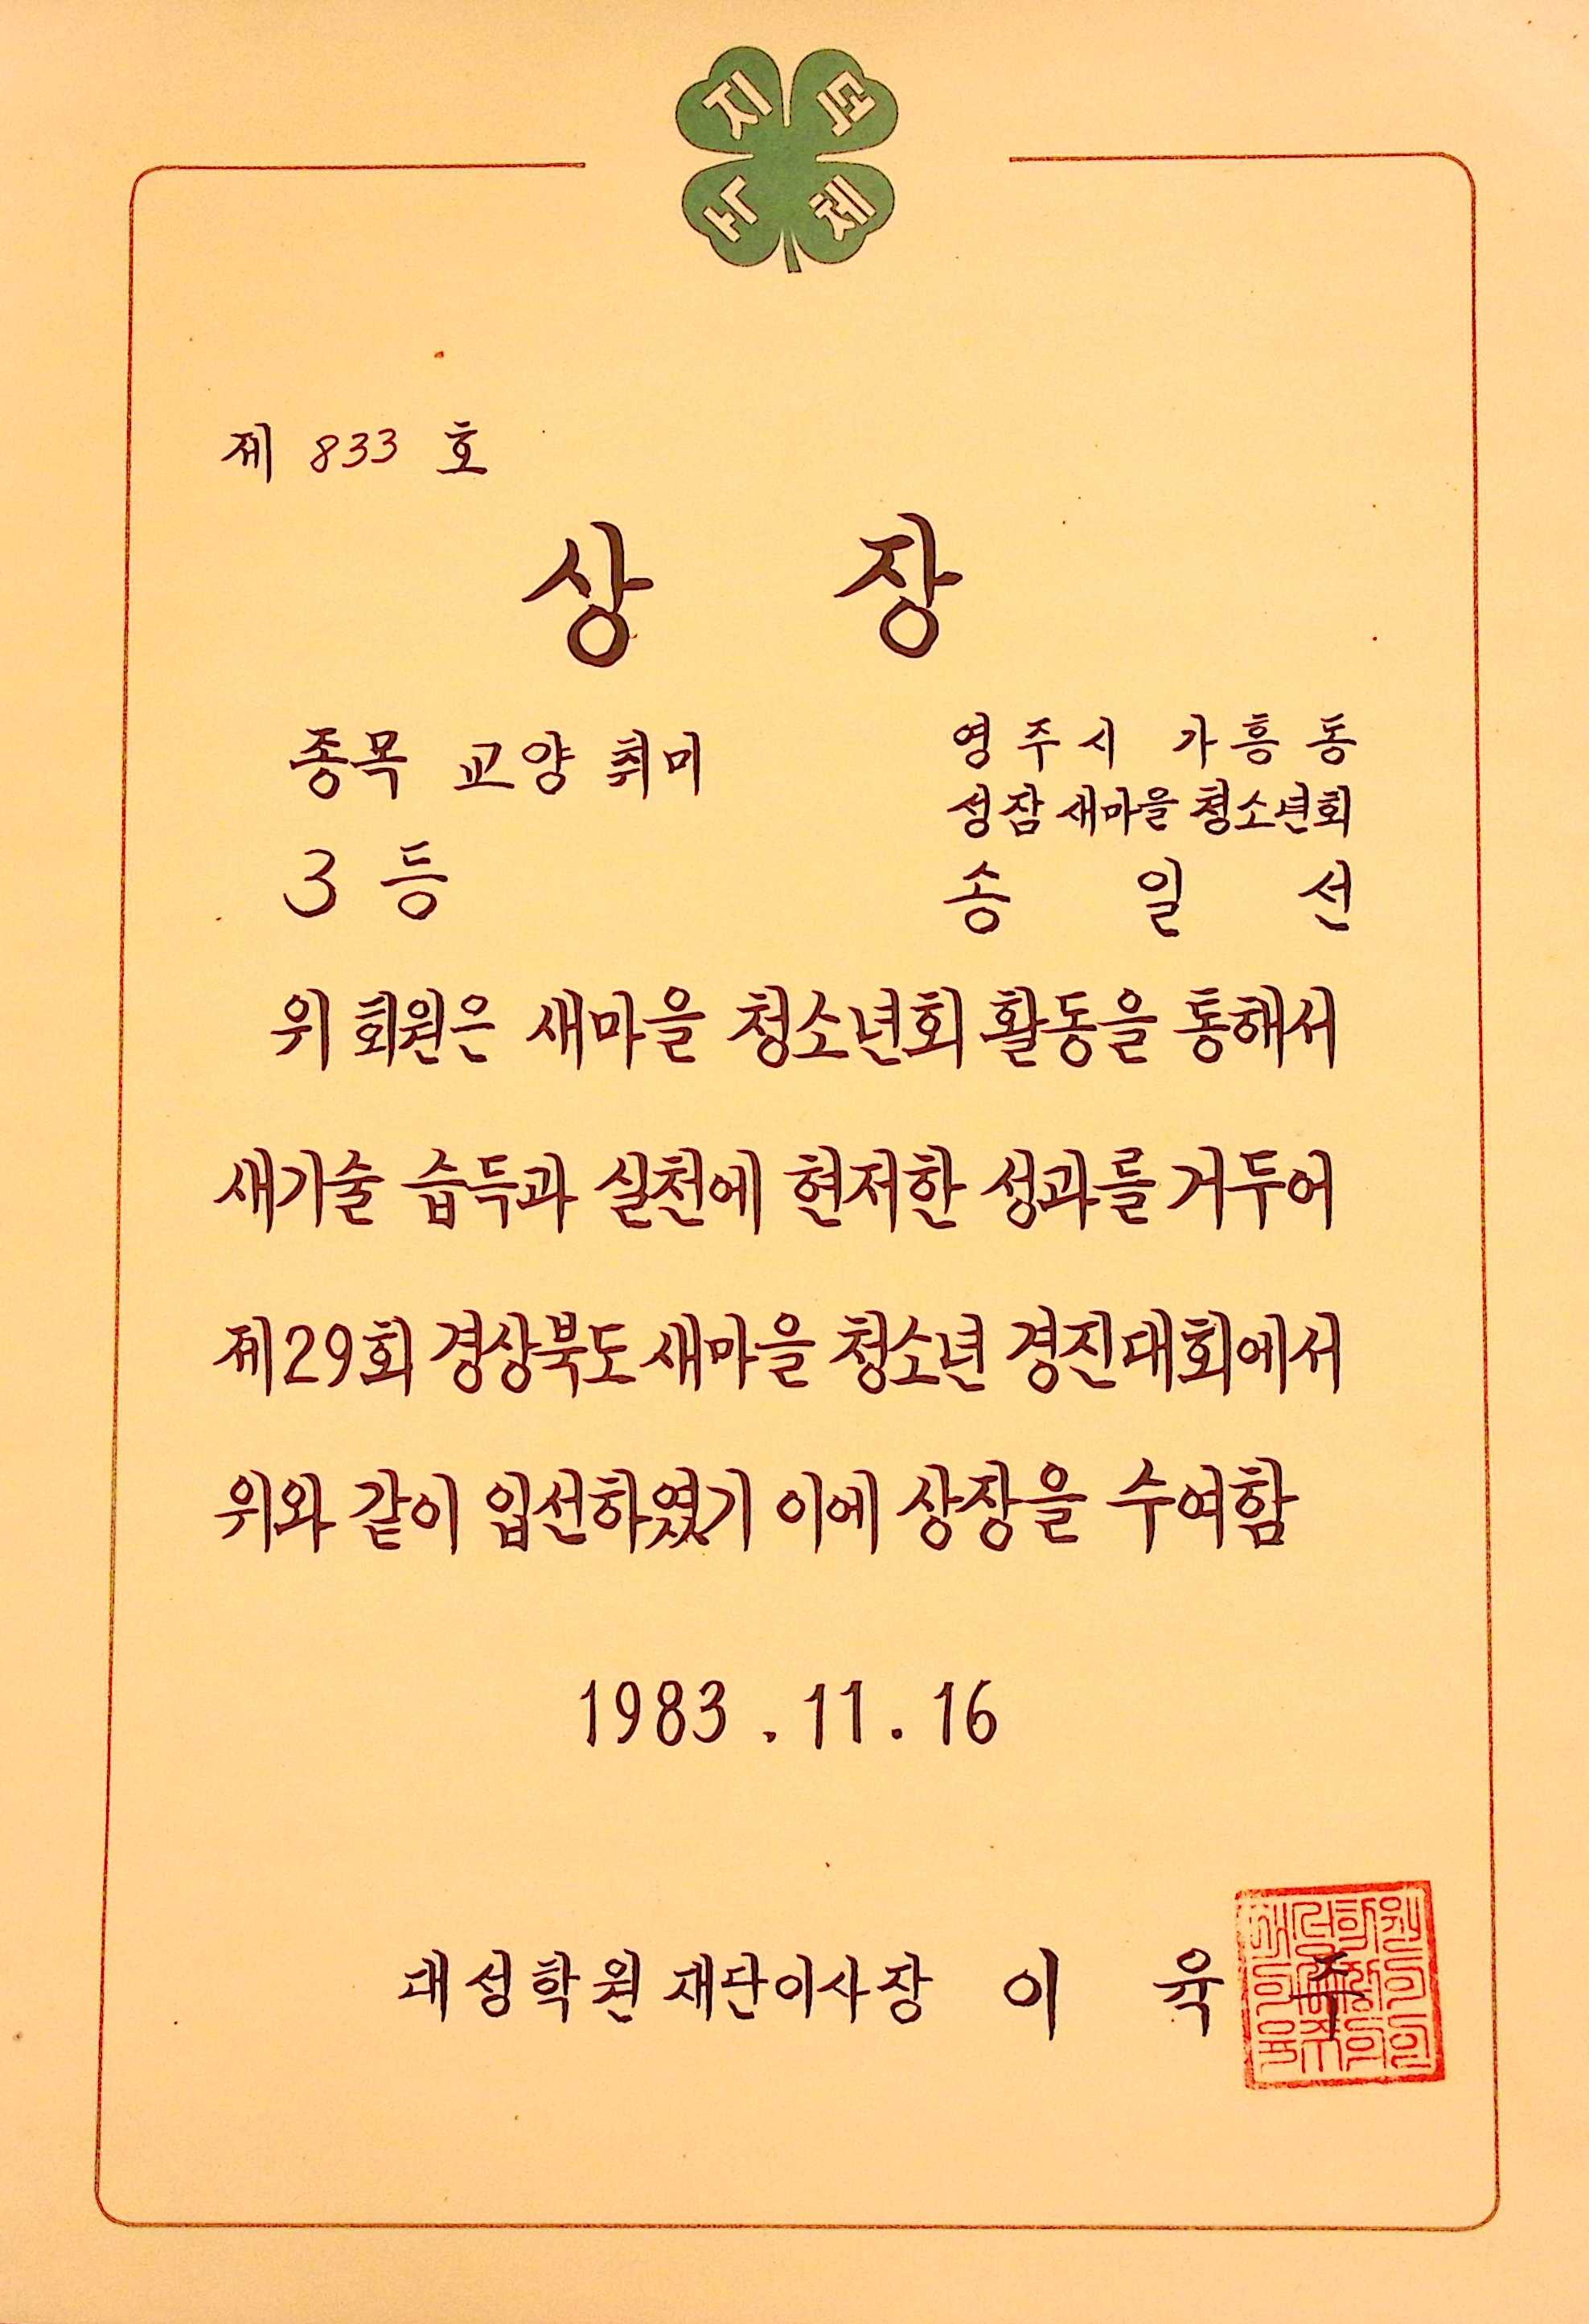 지
체
제 833 호
상 장
종목 교양 취미
3 등
영주시 가흥동
성잠 새마을 청소년회
송 일 선
위 회원은 새마을 청소년회 활동을 통해서
새기술 습득과 실천에 현저한 성과를 거두어
제29회 경상북도 새마을 청소년 경진대회에서
위와 같이 입선하였기 이에 상장을 수여함
1983.11.16
대성학원 재단이사장 이 육 주